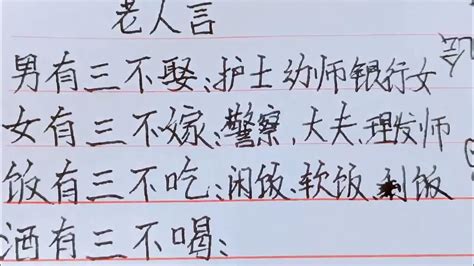 老人言
男有三不娶:护士幼师银行女
女有三不嫁:警察、大夫、理发师
饭有三不吃:闲饭、软饭、剩饭
酒有三不喝: